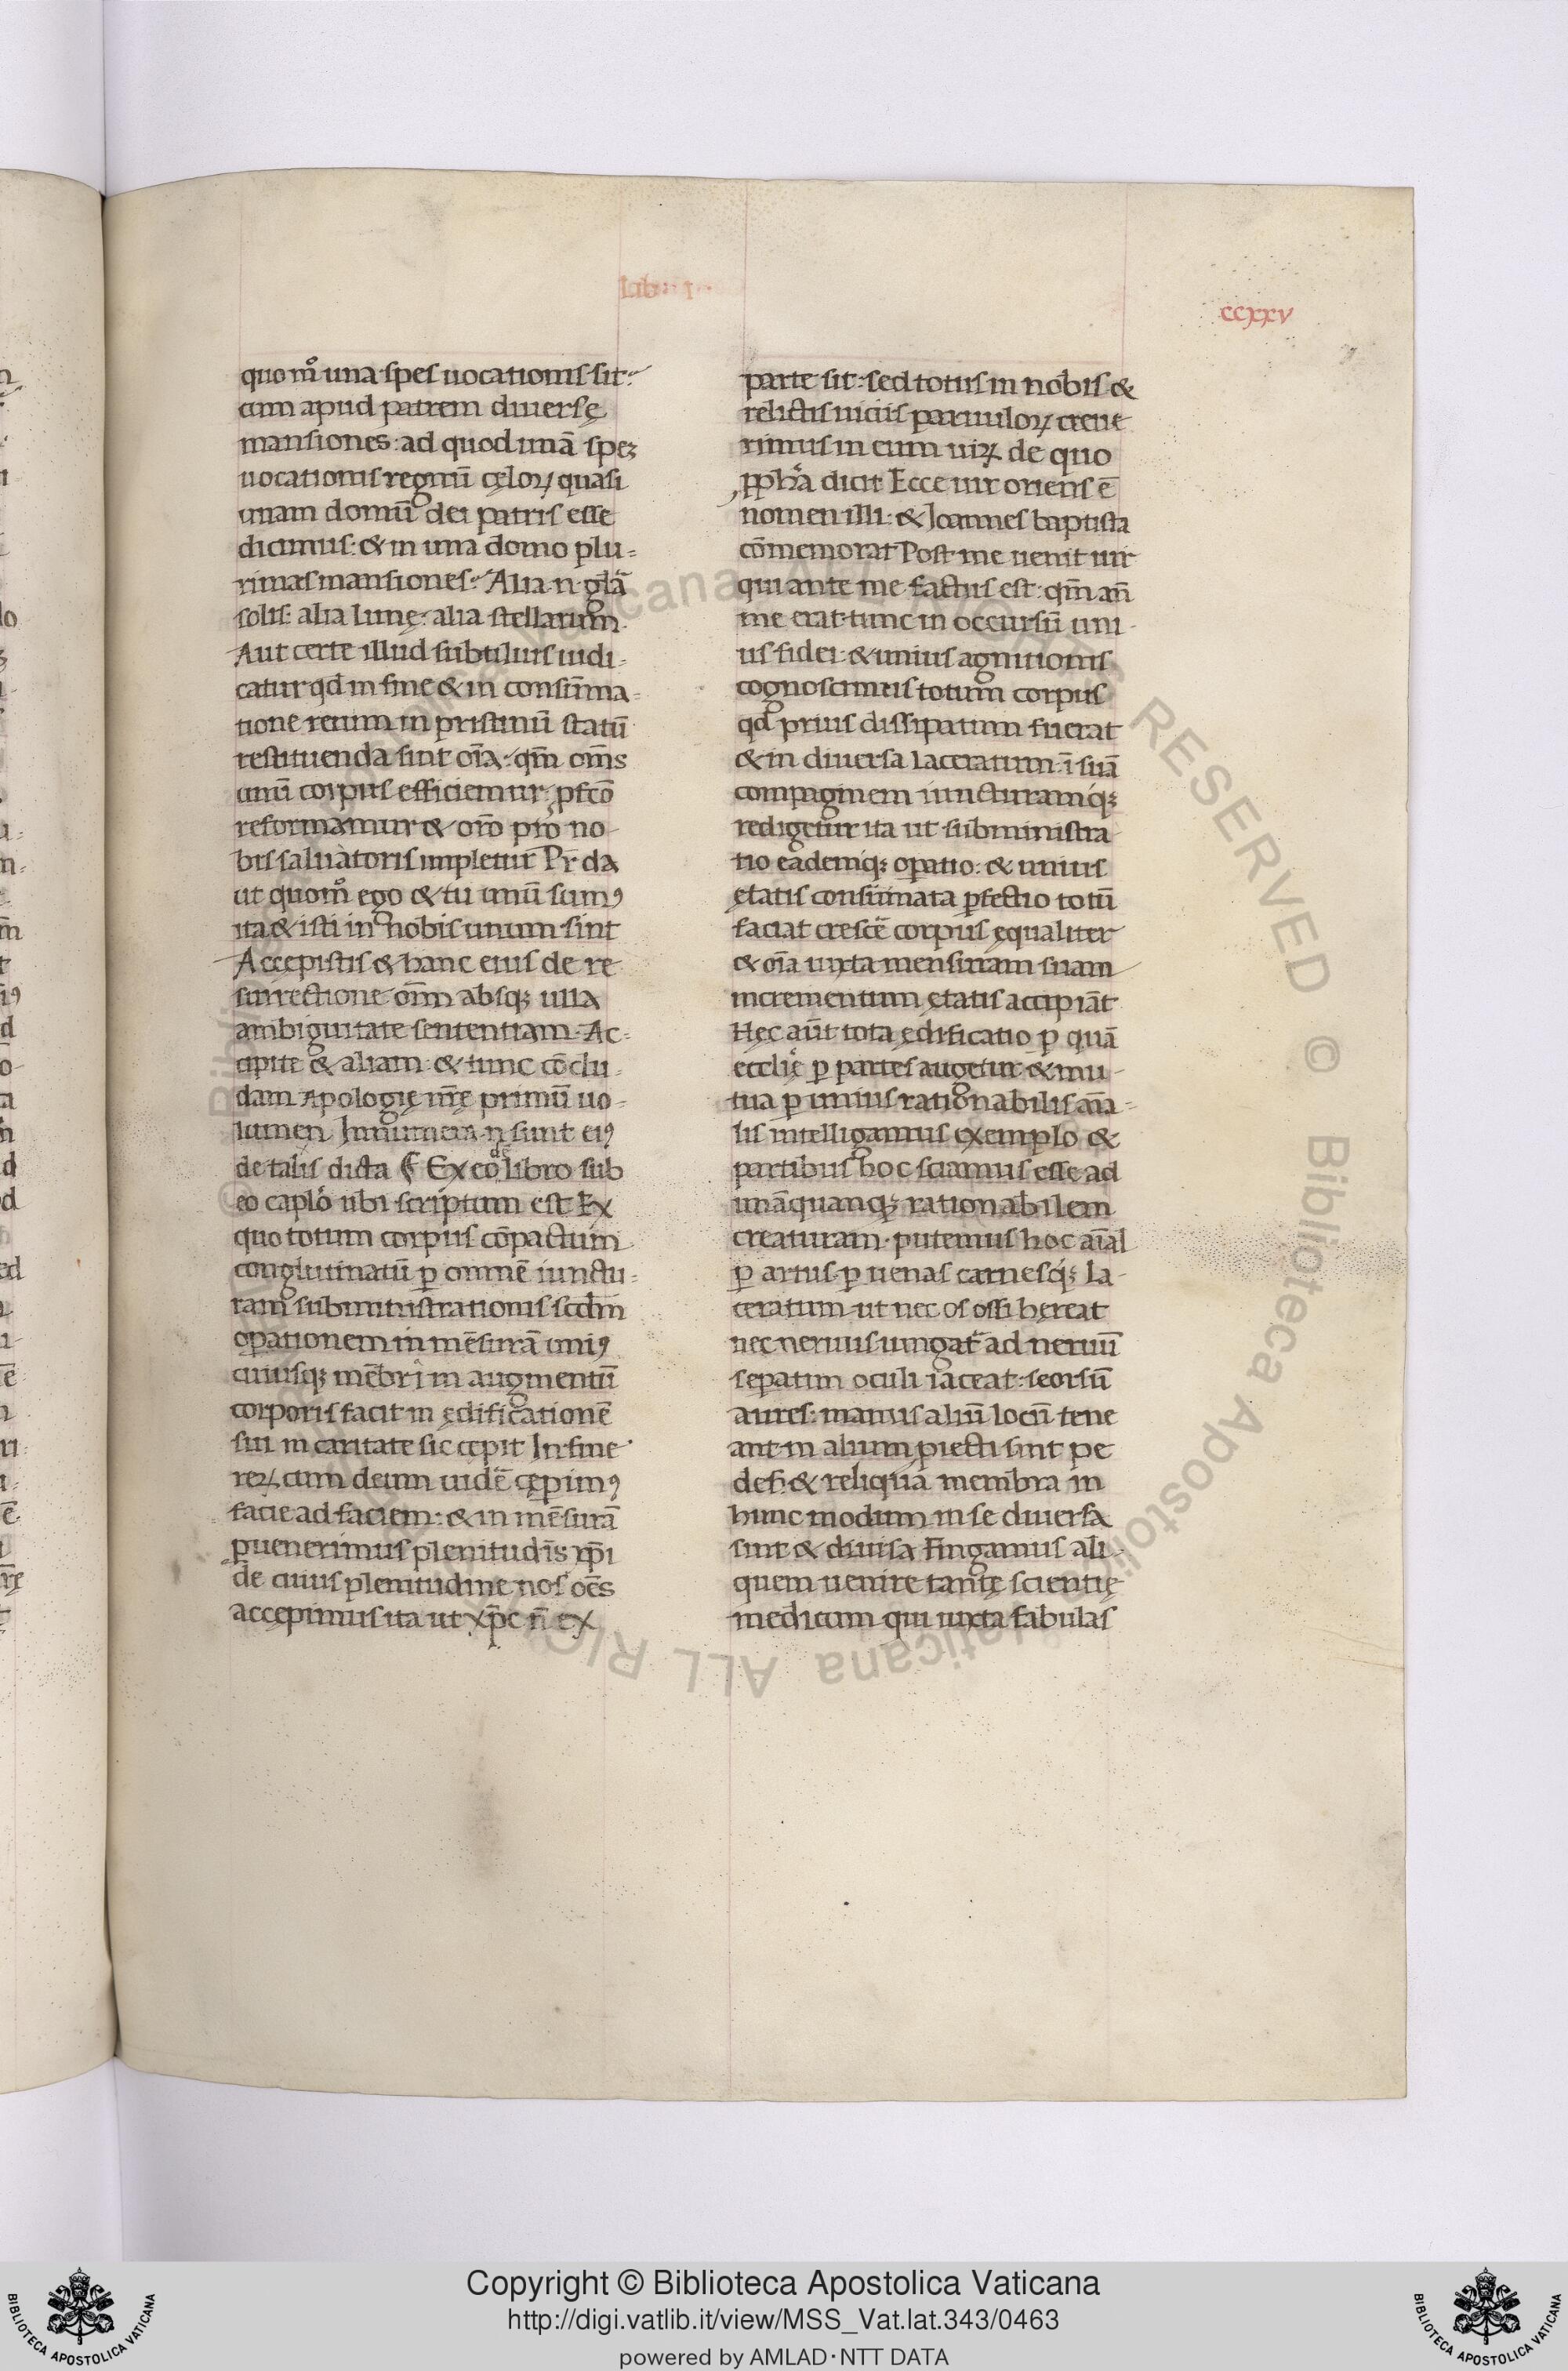 ccxxv
quomº una spes uocationis sit:
cum apud patrem diuersę
mansiones: ad quod unā spez
uocationis regnū cęloꝝ quasi
unam domū dei patris esse
dicimus: & in una domo plu=
rimas mansiones: Alia·n·glā
solis: alia lunę: alia stellarum
Aut certe illud subtilius iudi-
catur qd̄ in fine & in consūma-
tione rerum in pristinū statū
restituenda sint oīa: qm̄ om̄s
unū corpus efficiemur: ꝑfcō
reformamur & orō pro no-
bis saluatoris impletur Pr̄ da
ut quomº ego & tu unū sumꝰ
ita & isti in nobis unum sint
Accepistis & hanc eius de re
surrectione om̄n absqꝫ ulla
ambiguitate sententiam. Ac-
cipite & aliam: & tunc cōclu-
dam Apologię nr̄ę primū uo-
lumen Innumera·n·sunt eiꝰ
de talis dicta Ex eodē libro sub
eo caplo ubi scriptum est Ex
quo totum corpus cōpactum
conglutinatū ꝑ omnē iunctu=
ram subministrationis scdm̄
oꝑationem in mēsurā uniꝰ
cuiusqꝫ mēbri in augmentū
corporis facit in ędificationē
sui in caritate sic cepit In fine
reꝝ cum deum uidē cępimꝰ
facie ad faciem: & in mēsurā
ꝑuenerimus plenitudīs xp̄i
de cuius plenitudine nos oēs
accepimus ita ut xp̄c n̄ ex
parte sit: sed totus in nobis &
relictis uiciis paruuloꝝ creue
rimus in eum uiꝝ de quo
ꝓpha dicit Ecce uir oriens ē
nomen illi: & Ioannes baptista
cōmemorat Post me uenit uir
qui ante me factus est: qm̄ an̄
me erat tunc in occursū uni-
us fidei: & unius agnitionis
cognoscimus totum corpus
qd̄ prius dissipatum fuerat
& in diuersa laceratum ī suā
compaginem iuncturamqꝫ
redigetur ita ut subministra
tio eademqꝫ oꝑatio: & unius
ętatis consūmata ꝑfectio totū
faciat crescē corpus ęqualiter
& oīa iuxta mensuram suam
incrementum ętatis accipiāt
Hęc aūt tota ędificatio ꝑ quā
ecclię ꝑ partes augetur & mu-
tua ꝑ unius rationabilis aīa-
lis intelligamus exemplo &
partibus hoc sciamus esse ad
unāquanqꝫ rationabilem
creaturam· putemus hoc aīal
ꝑ artus ꝑ uenas carnesqꝫ la-
ceratum ut nec os ossi hęreat
nec neruus iungat᷑ ad neruū
seꝑatim oculi iaceat: seorsū
aures: manus aliū locū tene
ant in alium ꝓiecti sint pe
des: & reliqua membra in
hunc modum in se diuersa
sint & diuisa Fingamus ali-
quem uenire tantę scientię
medicum qui iuxta fabulas
Copyright © Biblioteca Apostolica Vaticana
http://digi.vatlib.it/view/MSS_Vat.lat.343/0463
powered by AMLAD·NTT DATA
BIBLIOTECA APOSTOLICA VATICANA
BIBLIOTECA APOSTOLICA VATICANA